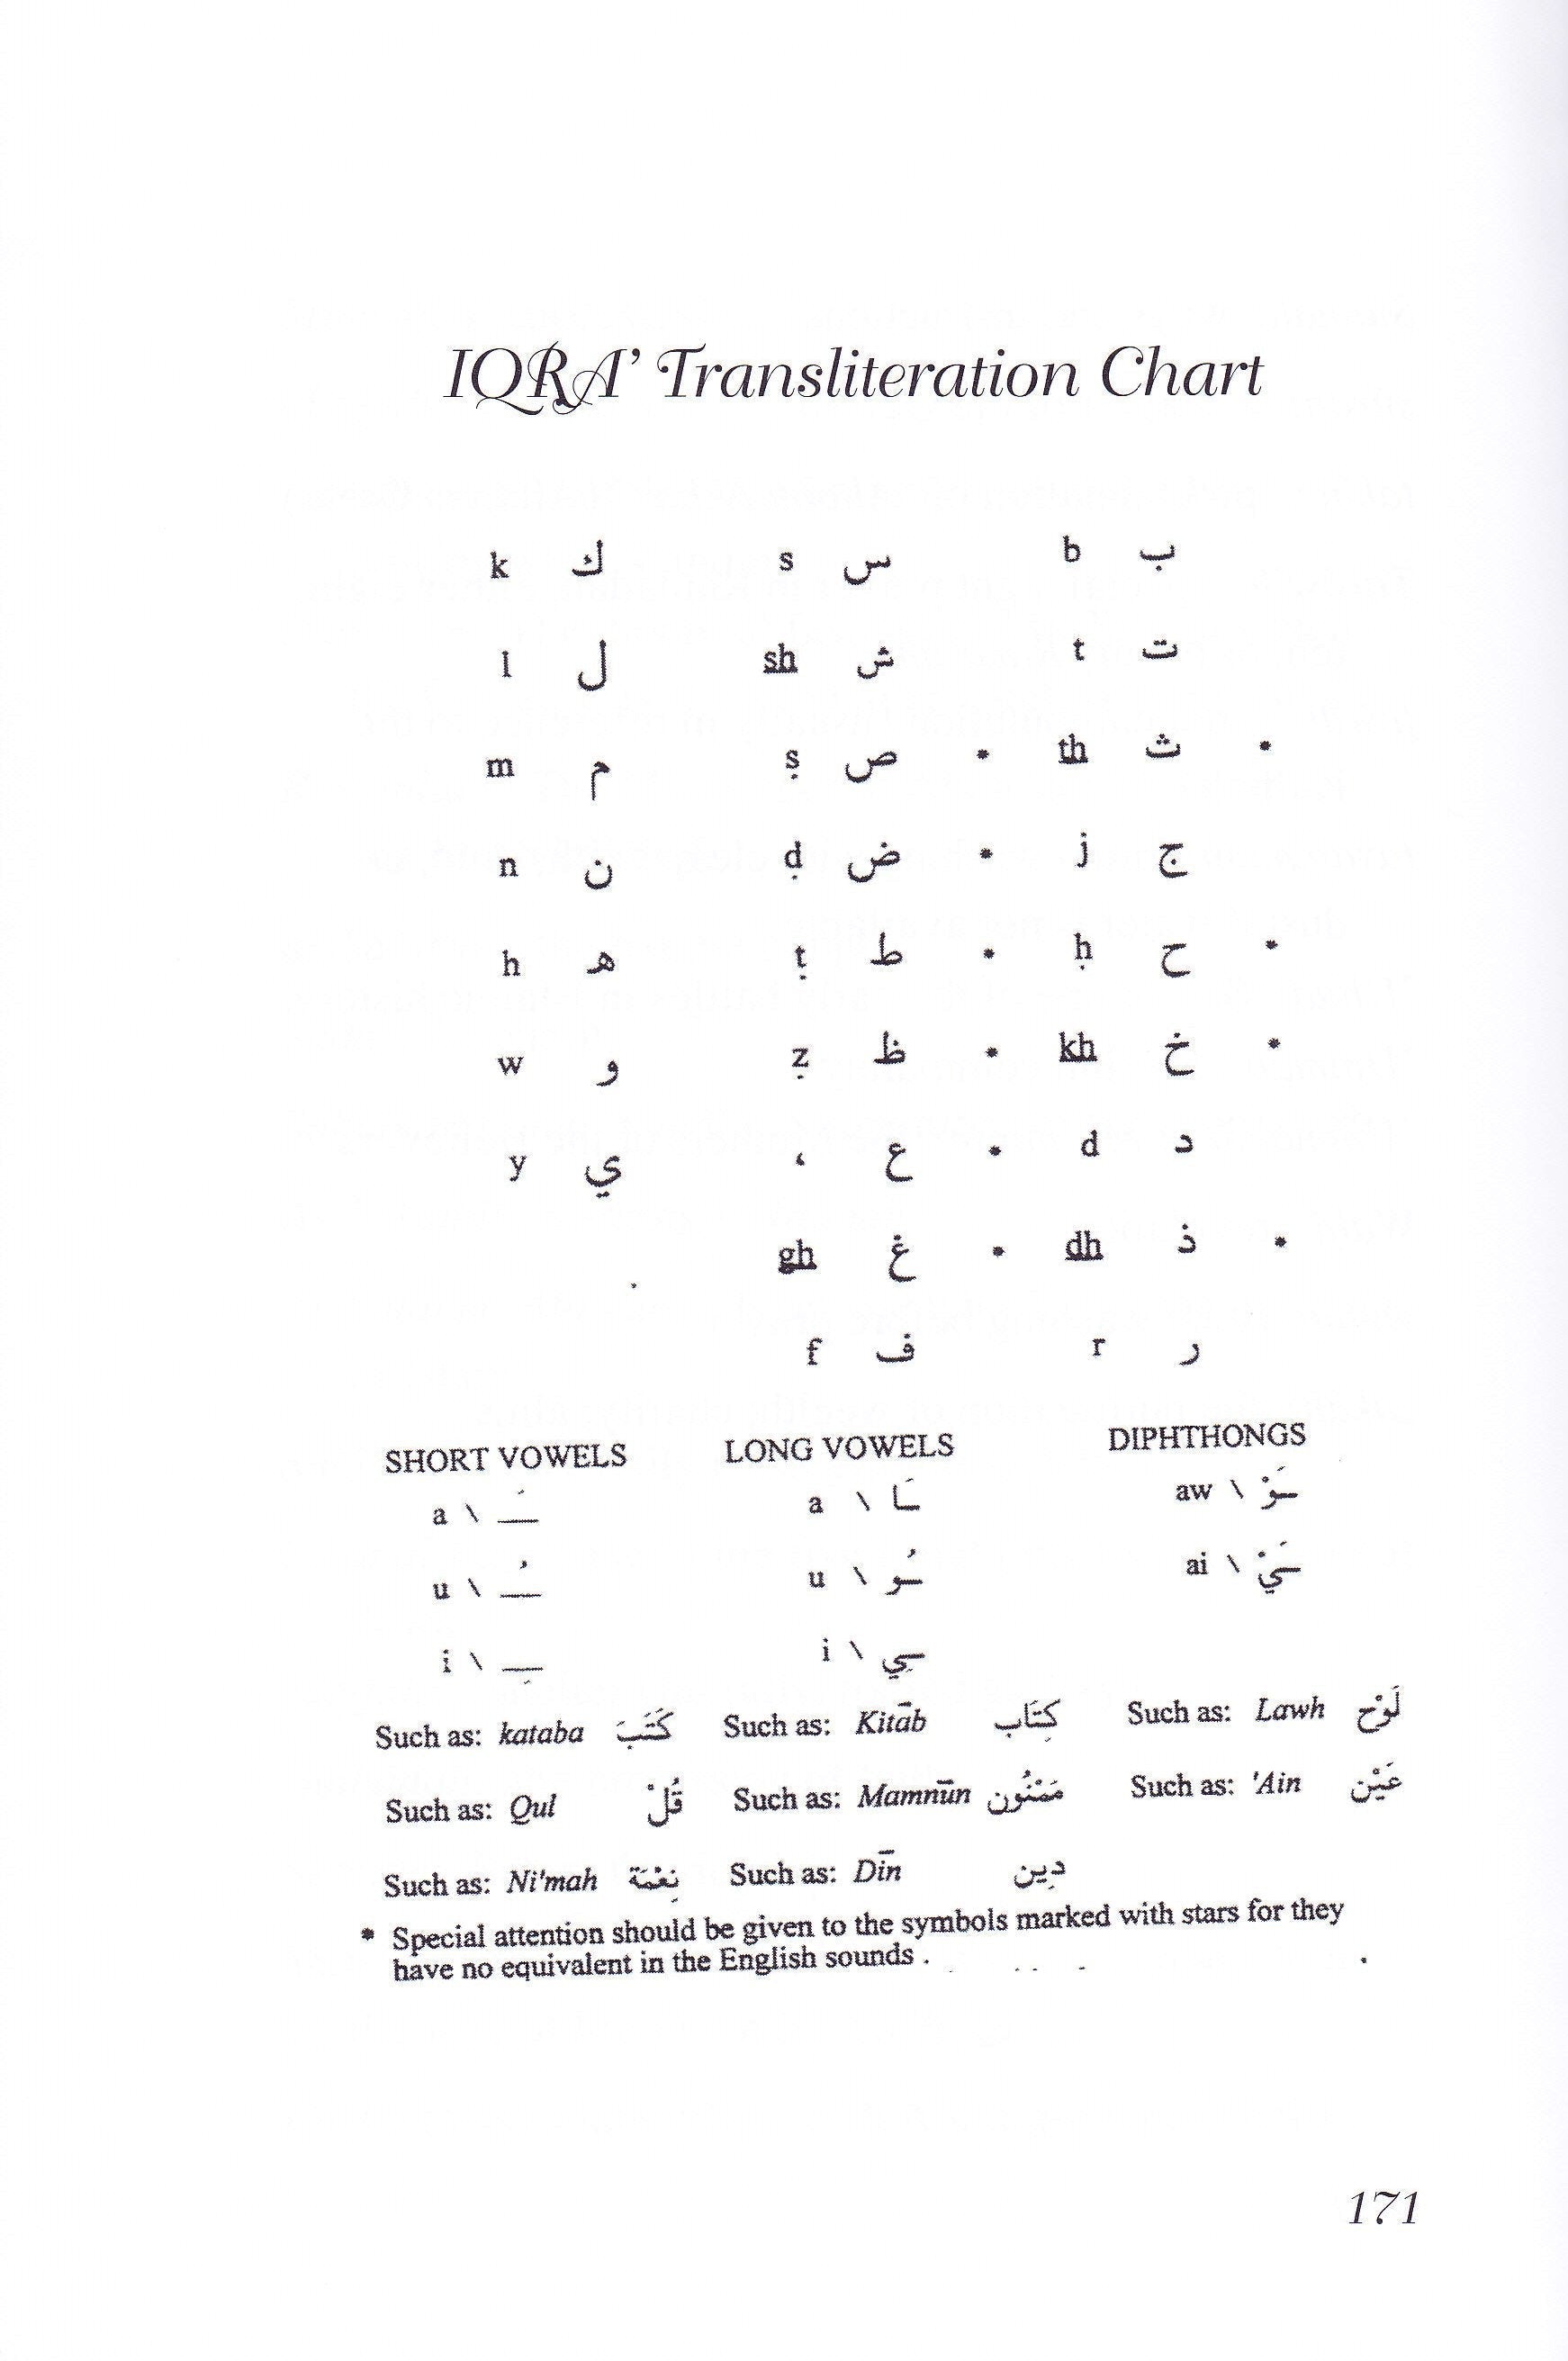 IQRA’ Transliteration Chart
k ك s س b ب
l ل sh ش t ت
m م ṣ ص * th ث *
n ن ḍ ض * j ج
h ه ṭ ط * ḥ ح *
w و ẓ ظ * kh خ *
y ي ‘ ع * d د
gh غ * dh ذ *
f ف r ر
SHORT VOWELS LONG VOWELS DIPHTHONGS
a \ ـَ a \ ـَا aw \ ـَوْ
u \ ـُ u \ ـُو ai \ ـَيْ
i \ ـِ i \ ـِي
Such as: kataba كَتَبَ Such as: Kitāb كِتَاب Such as: Lawh لَوْح
Such as: Qul قُلْ Such as: Mamnūn مَمْنُون Such as: 'Ain عَيْن
Such as: Ni'mah نِعْمَة Such as: Dīn دِين
* Special attention should be given to the symbols marked with stars for they
have no equivalent in the English sounds .
171